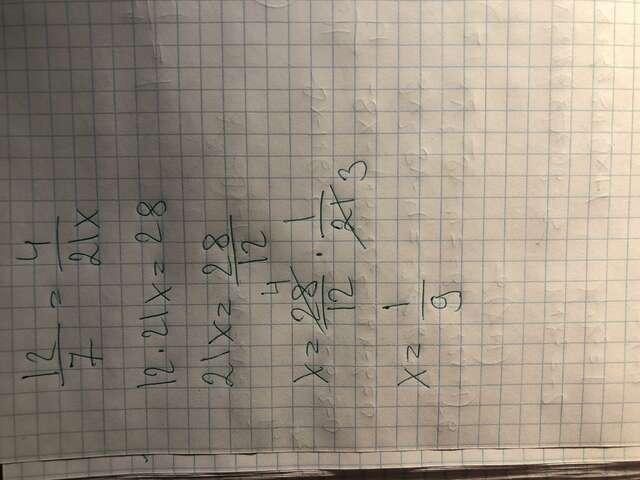 12/7 = 4/21x
12 · 21x = 28
21x = 28/12
x = 28/12 · 1/21 4 3
x = 1/9